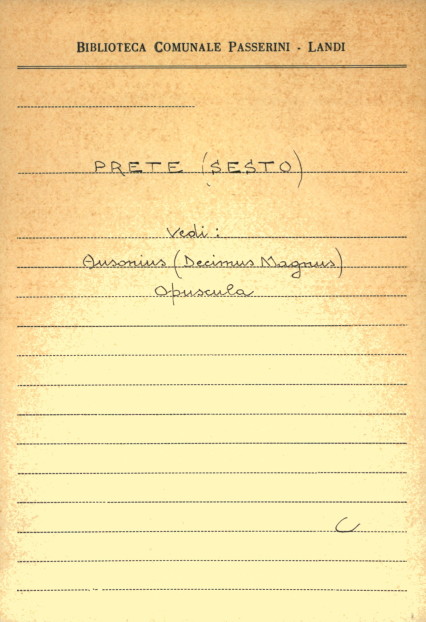 BIBLIOTECA COMUNALE PASSERINI - LANDI
PRETE (SESTO)
Vedi:
Ausonius (Decimus Magnus)
Opuscula
C